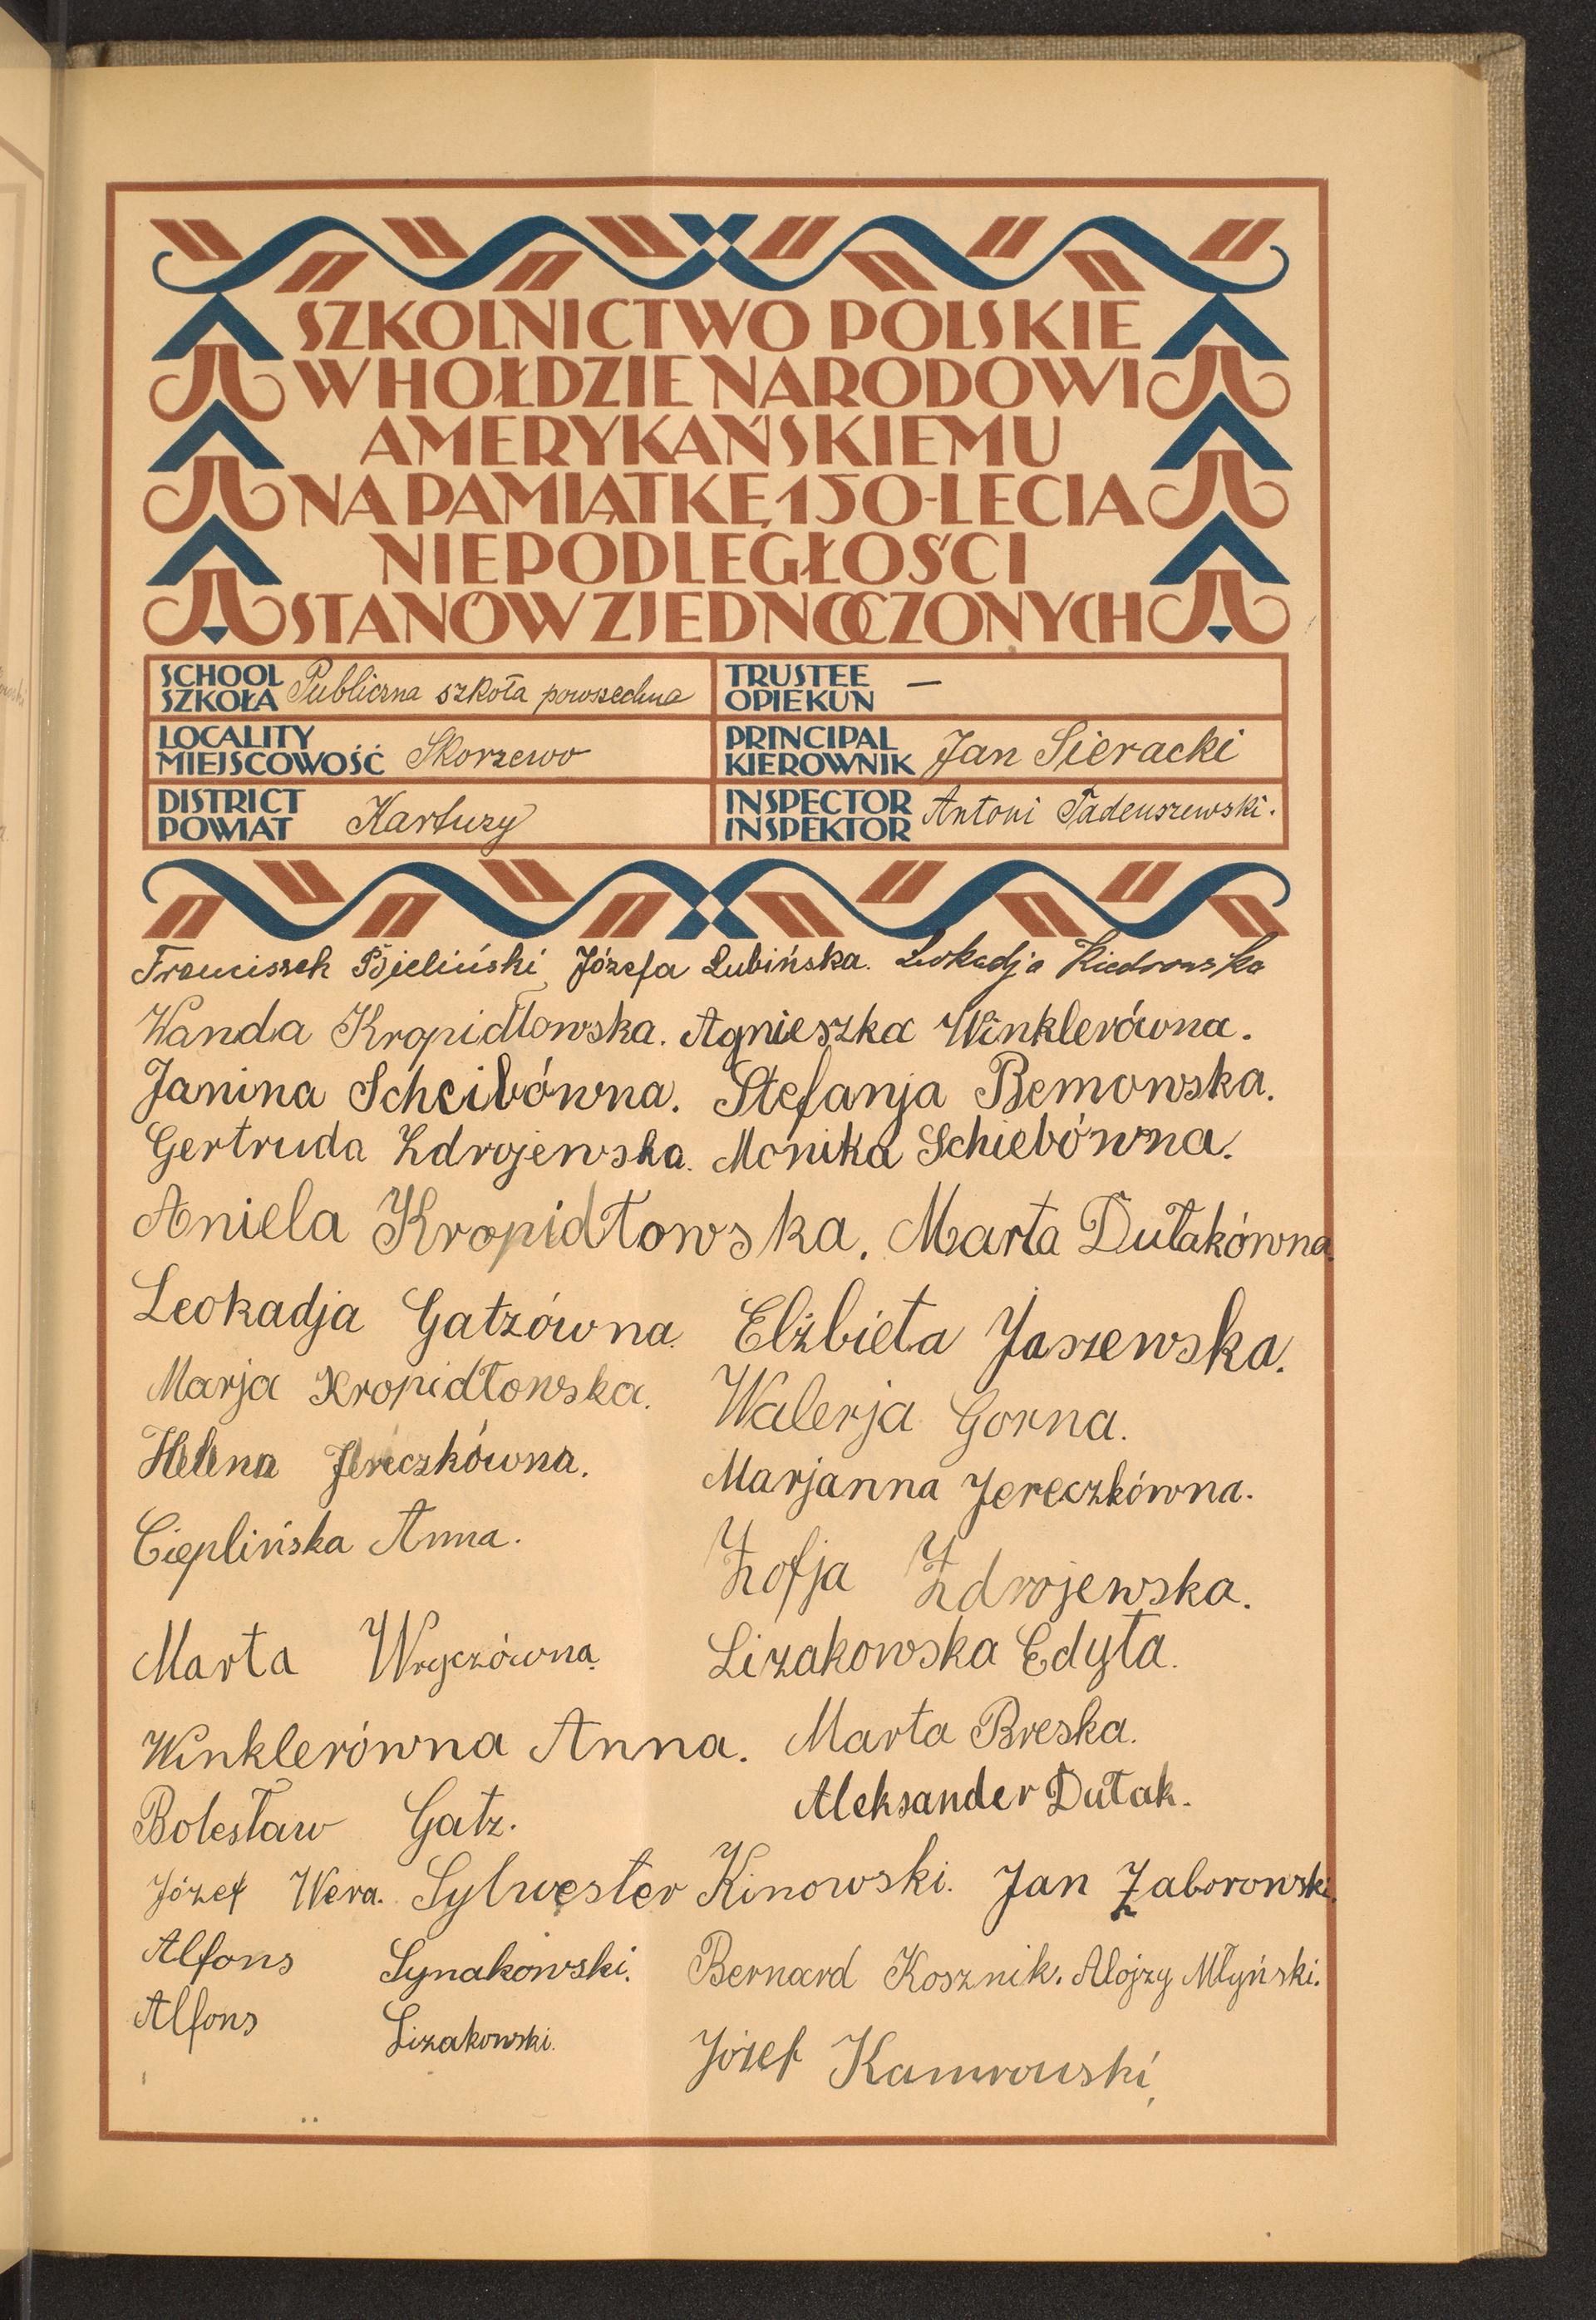 SZKOLNICTWO POLSKIE
W HOŁDZIE NARODOWI
AMERYKAŃSKIEMU
NA PAMIĄTKĘ 150-LECIA
NIEPODLEGŁOŚCI
STANÓW ZJEDNOCZONYCH
SCHOOL
SZKOŁA Publiczna szkoła powszechna
TRUSTEE
OPIEKUN —
LOCALITY
MIEJSCOWOŚĆ Skorzewo
PRINCIPAL
KIEROWNIK Jan Sieracki
DISTRICT
POWIAT Kartuzy
INSPECTOR
INSPEKTOR Antoni Tadeuszewski.
Franciszek Bieliński Józefa Lubińska. Leokadja Kiedrowska
Wanda Kropidłowska. Agnieszka Winklerówna.
Janina Scheibówna. Stefanja Bemowska.
Gertruda Zdrojewska. Monika Schiebówna.
Aniela Kropidłowska. Marta Dułakówna.
Leokadja Gatzówna. Elżbieta Jaszewska.
Marja Kropidłowska. Walerja Gorna.
Helena Jereczkówna. Marjanna Jereczkówna.
Cieplińska Anna. Zofja Zdrojewska.
Marta Wryczówna. Lizakowska Edyta.
Winklerówna Anna. Marta Breska.
Bolesław Gatz. Aleksander Dułak.
Józef Wera. Sylwester Kinowski. Jan Zaborowski.
Alfons Synakowski. Bernard Kosznik. Alojzy Młyński.
Alfons Lizakowski. Józef Kamrowski